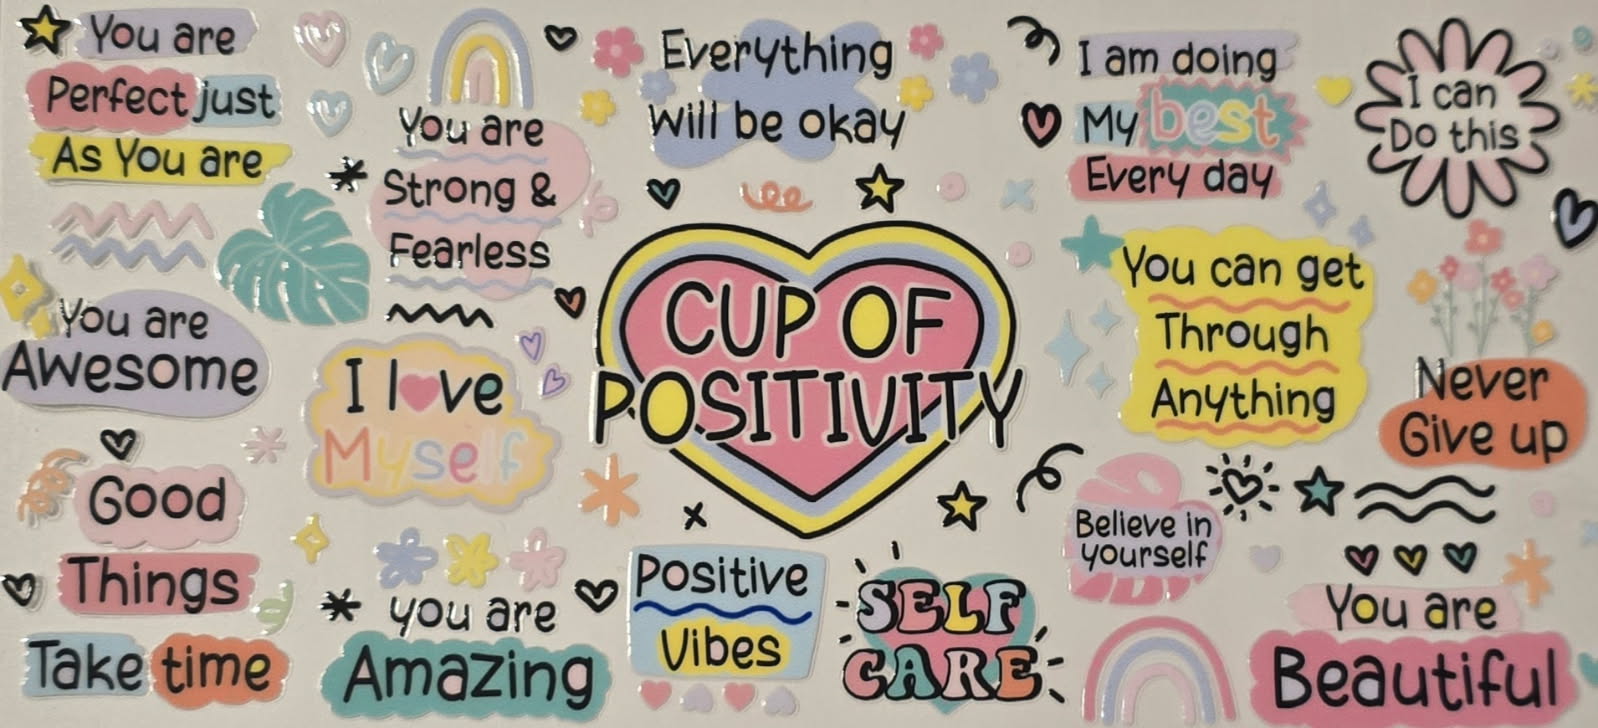 You are
Perfect just
As You are
You are
Strong &
Fearless
Everything
will be okay
I am doing
My best
Every day
I can
Do this
You are
Awesome
I love
Myself
CUP OF
POSITIVITY
You can get
Through
Anything
Never
Give up
Good
Things
Take time
you are
Amazing
Positive
Vibes
SELF
CARE
Believe in
yourself
You are
Beautiful